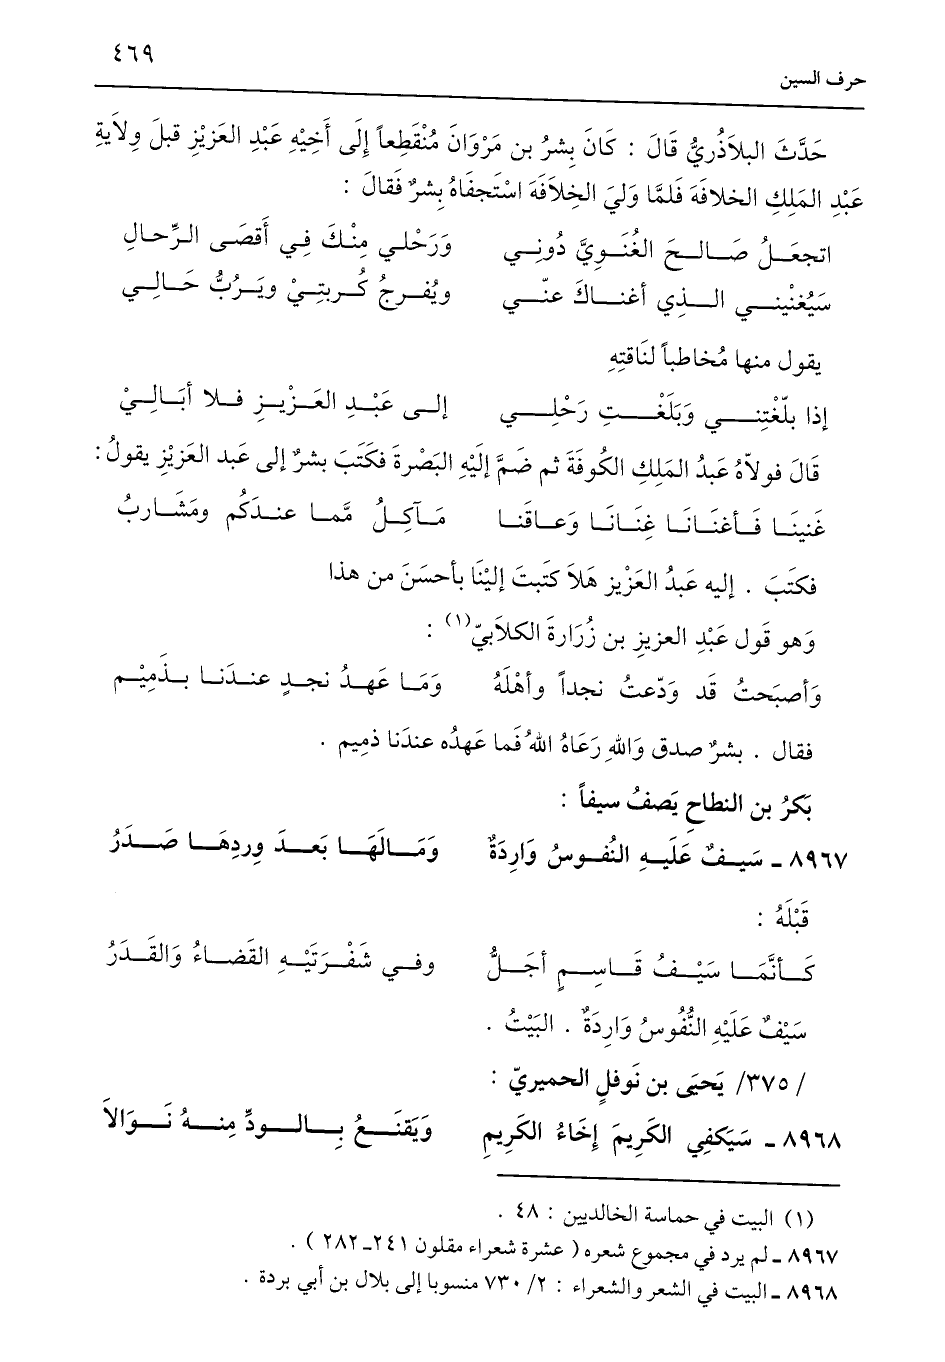 ٤٦٩
حرف السين
حَدَّثَ البلاَذُريُّ قَالَ : كَانَ بِشرُ بن مَرْوَانَ مُنْقَطِعاً إِلَى أَخِيْهِ عَبْدِ العَزِيْزِ قبلَ وِلاَيةِ
عَبْدِ المَلِكِ الخلافَة فَلمَّا وَليَ الخِلاَفَة اسْتَجفَاهُ بِشرٌ فَقالَ :
اتجعَلُ صَالحَ الغُنَويَّ دُونِي وَرَحْلي مِنْكَ فِي أَقصَى الرِّحالِ
سَيُغْنيْني الذِي أغنَاكَ عنّي ويُفرجُ كُربتِيْ ويَرُبُّ حَالِي
يقول منها مُخاطباً لنَاقتِهِ
إذا بلّغْتِنِي وَبَلَغْتِ رَحْلِي إلى عَبْدِ العَزيْزِ فلا أبَالِيْ
قَالَ فولاّهُ عَبدُ المَلكِ الكُوفَةَ ثم ضَمَّ إلَيْهِ البَصْرةَ فكتَبَ بشرٌ إلى عَبد العَزيْزِ يقولُ :
غَنينَا فَأغنَانَا غِنَانَا وَعاقنَا مَآكِلُ مَّما عندَكُم ومَشَاربُ
فكتَبَ . إليه عَبدُ العَزْيز هَلاَ كتَبتَ إليْنَا بأحسَنَ من هذا
وَهو قَول عَبْدِ العزيزِ بن زُرَارةَ الكلاَبيّ(١) :
وَأصبَحتُ قَد وَدّعتُ نجداً وأهْلَهُ وَمَا عَهدُ نجدٍ عندَنا بذَمِيْم
فقال . بشرٌ صدق وَاللهِ رَعَاهُ اللهُ فَما عَهدُه عندَنا ذمِيم .
بَكرُ بن النطاحِ يَصفُ سيفاً :
٨٩٦٧ ـ سَيفٌ عَلَيهِ النُفوسُ وَاردَةٌ وَمَالَهَا بَعدَ وِردِهَا صَدَرُ
قَبْلَهُ :
كَأنَّمَا سَيْفُ قَاسِمٍ أجَلُّ وفي شَفْرَتَيْهِ القَضَاءُ وَالقَدَرُ
سَيْفٌ عَلَيْهِ النُّفُوسُ وَارِدَةٌ . البَيْتُ .
/ ٣٧٥/ يَحيَى بن نَوفلٍ الحميريّ :
٨٩٦٨ ـ سَيَكفِي الكَرِيمَ إخَاءُ الكَرِيمِ وَيَقنَعُ بِالودِّ مِنهُ نَوالاَ
(١) البيت في حماسة الخالديين : ٤٨ .
٨٩٦٧ ـ لم يرد في مجموع شعره ( عشرة شعراء مقلون ٢٤١ـ٢٨٢ ) .
٨٩٦٨ ـ البيت في الشعر والشعراء : ٢/ ٧٣٠ منسوبا إلى بلال بن أبي بردة .